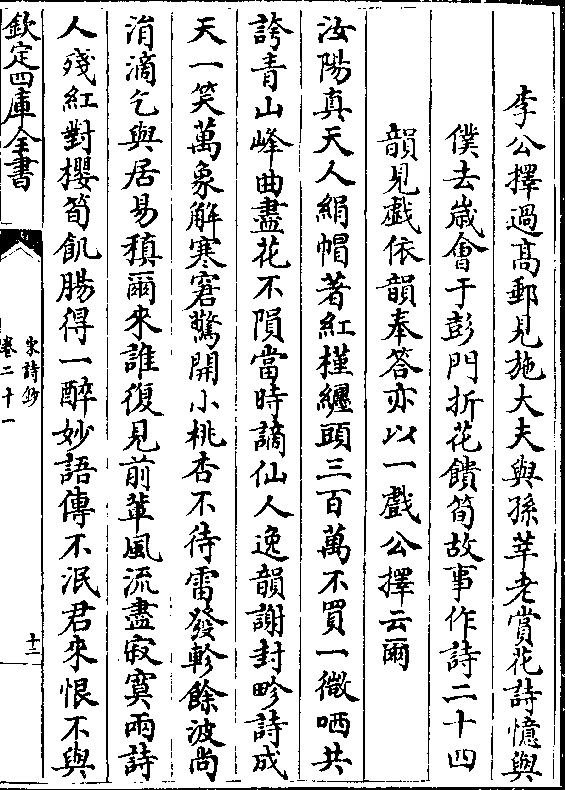 李公擇過高郵見施大夫與孫莘老賞花詩憶與
僕去歲會于彭門折花饋筍故事作詩二十四
韻見戲依韻奉答亦以一戲公擇云爾
汝陽真天人絹帽著紅槿纏頭三百萬不買一微哂共
誇青山峰曲盡花不隕當時謫仙人逸韻謝封畛詩成
天一笑萬象解寒窘驚開小桃杏不待雷發軫餘波尚
涓滴乞與居易稹爾來誰復見前輩風流盡寂寞兩詩
人殘紅對櫻筍飢腸得一醉妙語傳不泯君來恨不與
欽定四庫全書
宋詩鈔
卷二十一
十二